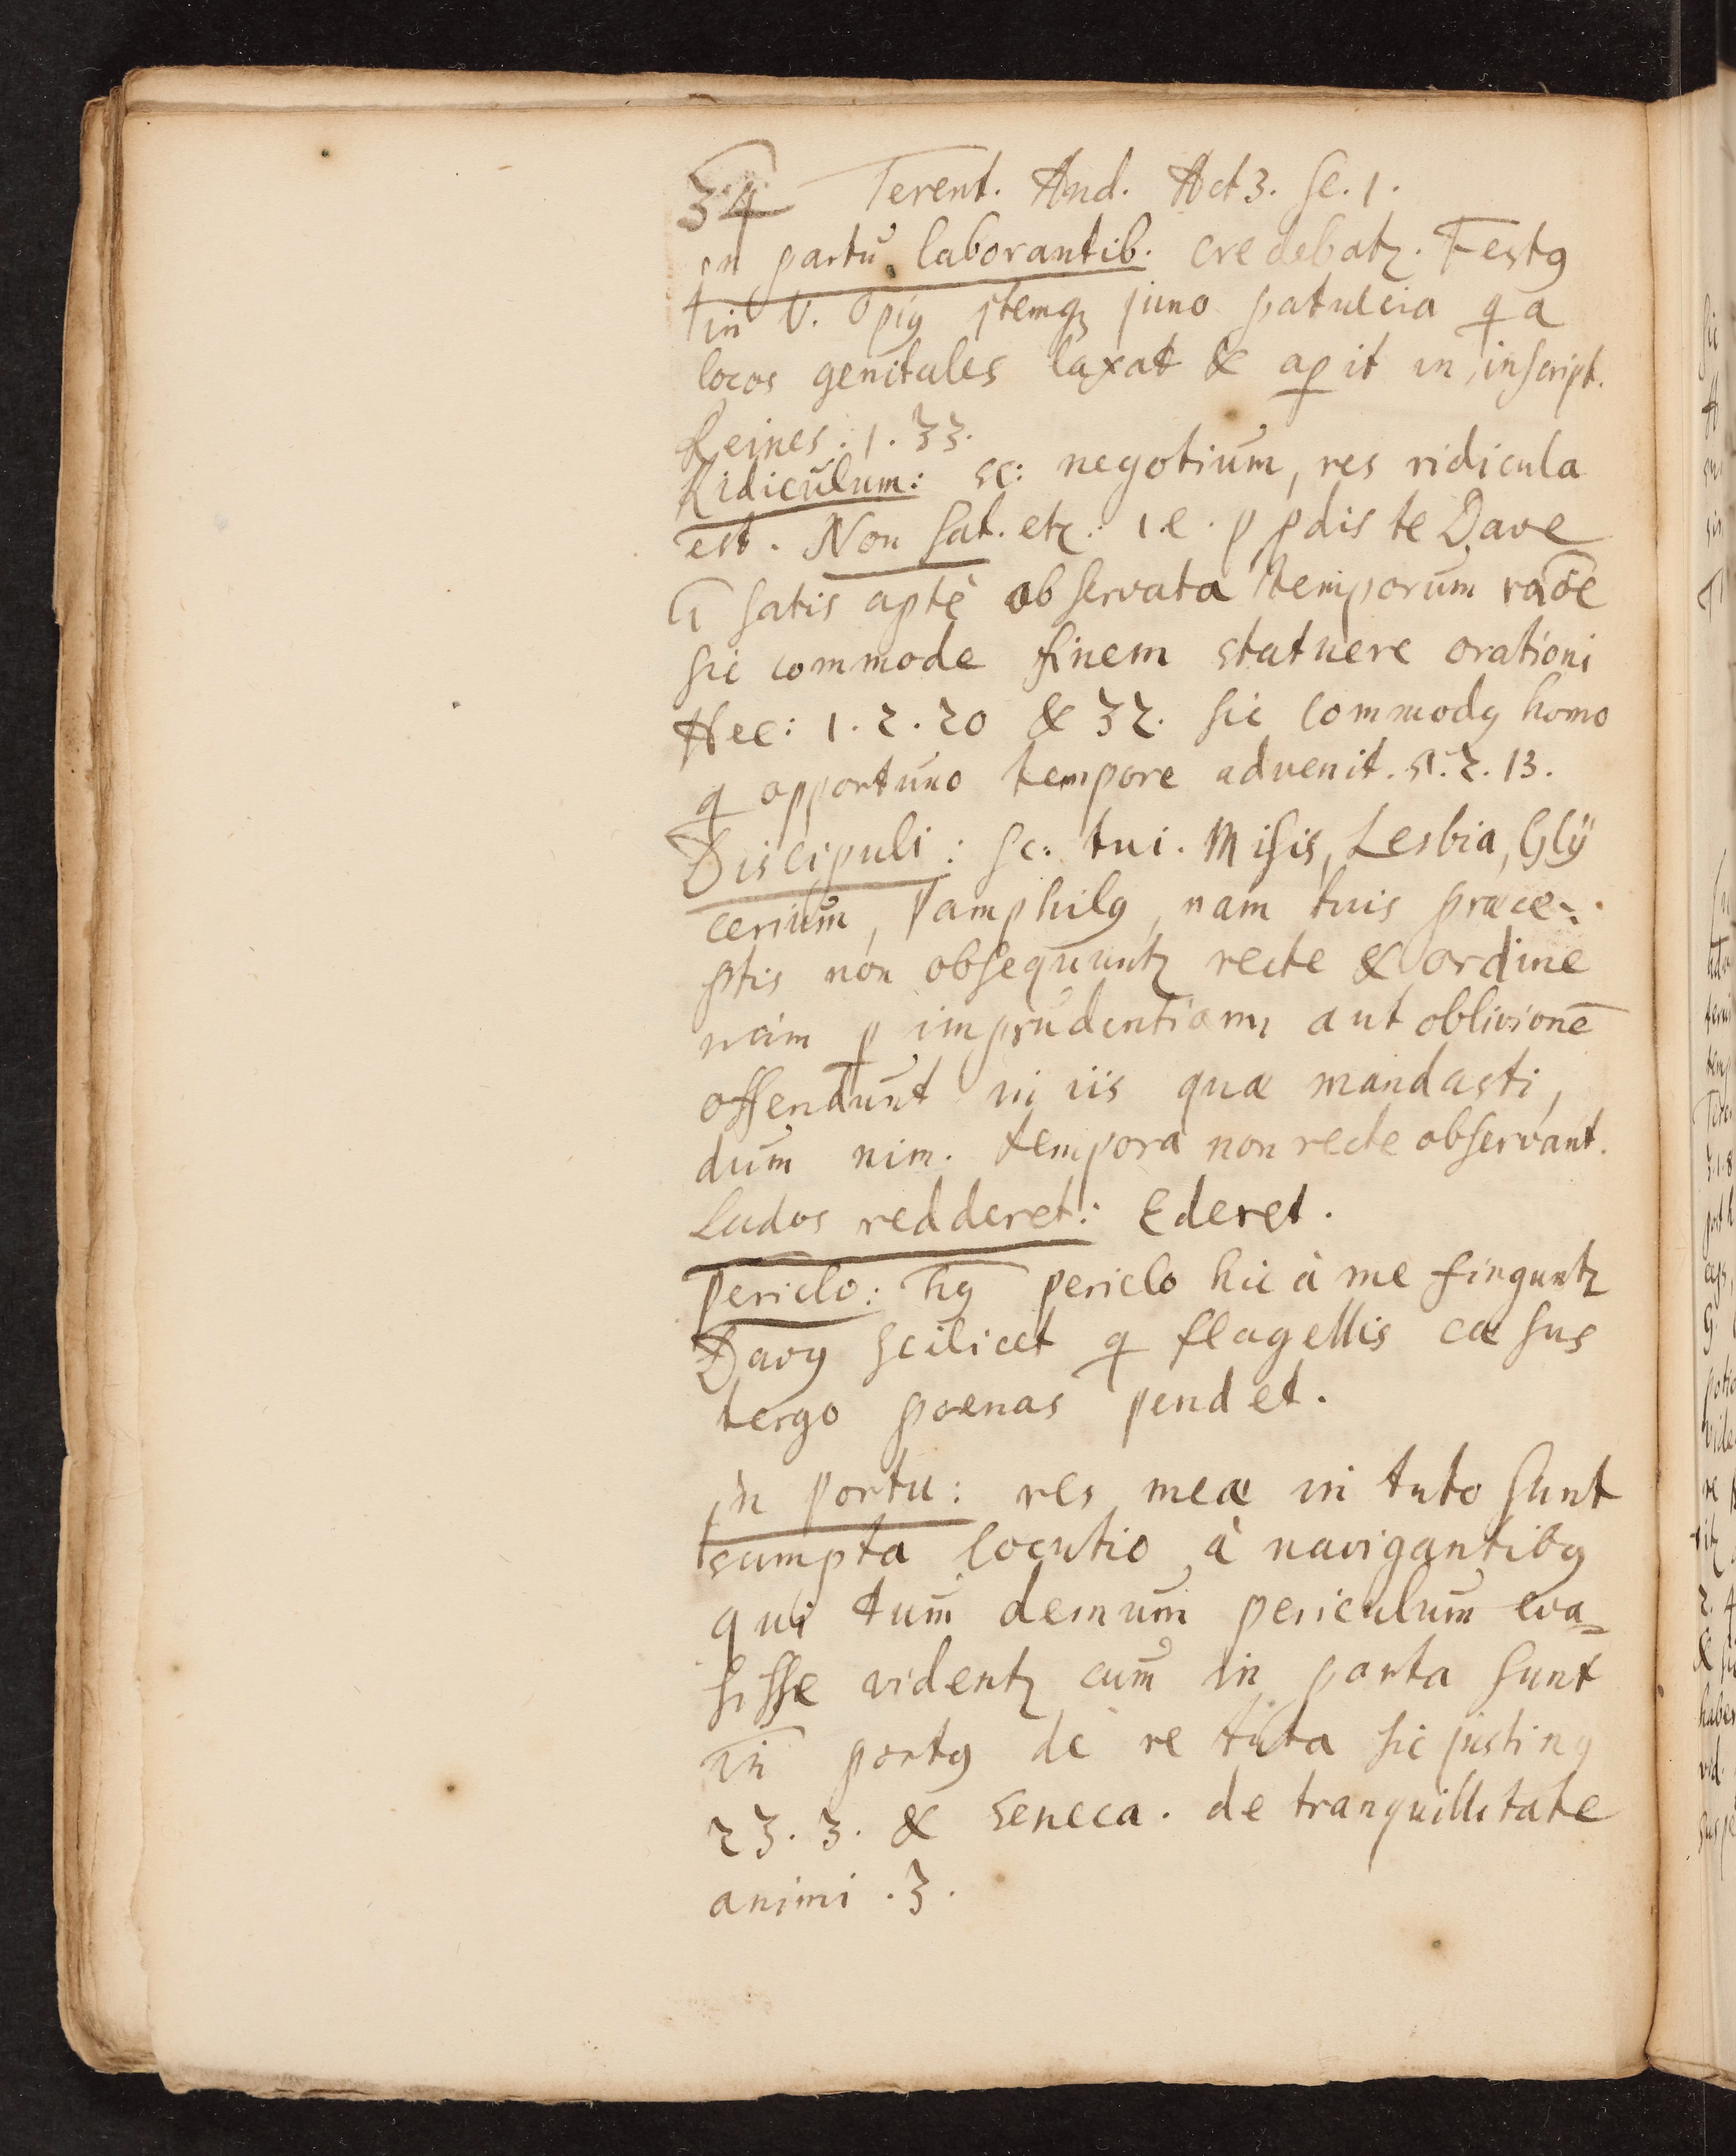 34 Terent. And. Act 3. Sc. 1.
in partu laborantib. credebatꝛ. Festꝯ
in V. Opiꝯ itemqꝫ juno patulcia q̄ a
locos genitales laxat & aꝑit in inscript.
Reines. 1. 33.
Ridiculum: sc: negotium, res ridicula
est. Non sat. etc: i.e. p pdis te Dave
satis aptè observata temporum raōe
sic commode finem statuere orationi
Hec: 1. 2. 20 & 32. sic commodꝯ homo
q opportuno tempore advenit. 5. 2. 13.
Discipuli: sc: tui. Misis, Lesbia, Glÿ
cerium, Pamphilꝯ, nam tuis præce-
ptis non obsequuntꝛ recte & ordine
nam ꝑ imprudentiam aut oblivionē
offendunt in iis quæ mandasti,
dum nim. tempora non recte observant.
Ludos redderet: Ederet.
Periclo: hꝯ periclo hic à me finguntꝛ
Davꝯ scilicet q flagellis cæsus
tergo poenas pendet.
in Portu: res meæ in tuto sunt
sumpta locutio à navigantibꝯ
qui tum demum periculum eva-
sisse videntꝛ cum in porta sunt
in portꝯ de re tuta sic justinꝯ
23. 3. & Seneca. de tranquillitate
animi. 3.